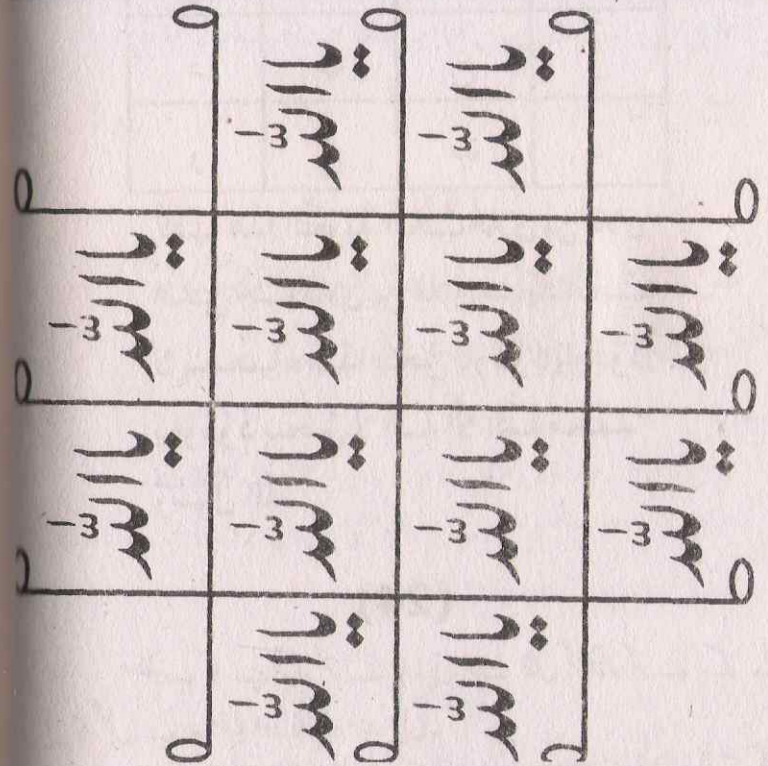 یا اللّٰہ یا اللّٰہ
یا اللّٰہ یا اللّٰہ یا اللّٰہ یا اللّٰہ
یا اللّٰہ یا اللّٰہ یا اللّٰہ یا اللّٰہ
یا اللّٰہ یا اللّٰہ